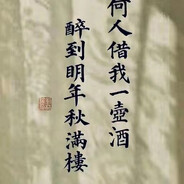 何人借我一壺酒
醉到明年秋滿樓